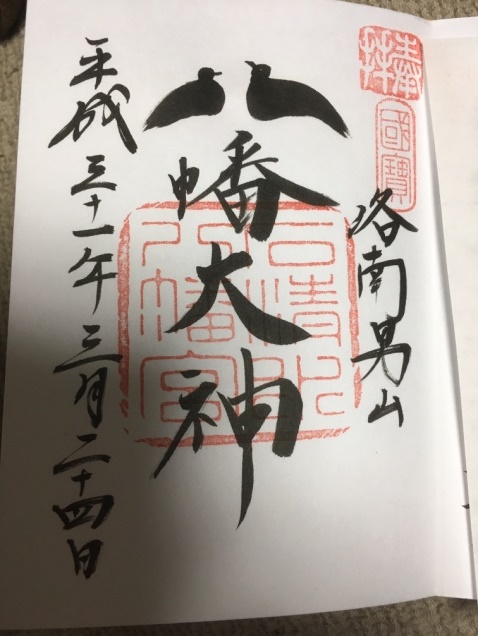 奉拝
國寶
洛南男山
八幡大神
石清水八幡宮
平成三十一年三月二十四日